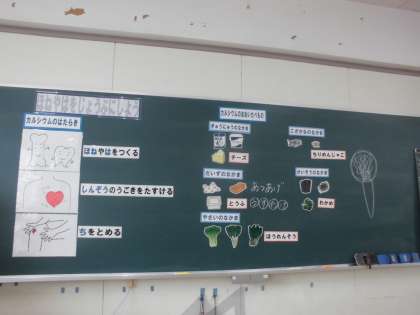 ほねやはをじょうぶにしよう
カルシウムのはたらき
ほねやはをつくる
しんぞうのうごきをたすける
ちをとめる
カルシウムのおおいたべもの
ぎゅうにゅうのなかま
チーズ
こざかなのなかま
ちりめんじゃこ
だいずのなかま
あつあげ
とうふ
かいそうのなかま
わかめ
やさいのなかま
ほうれんそう